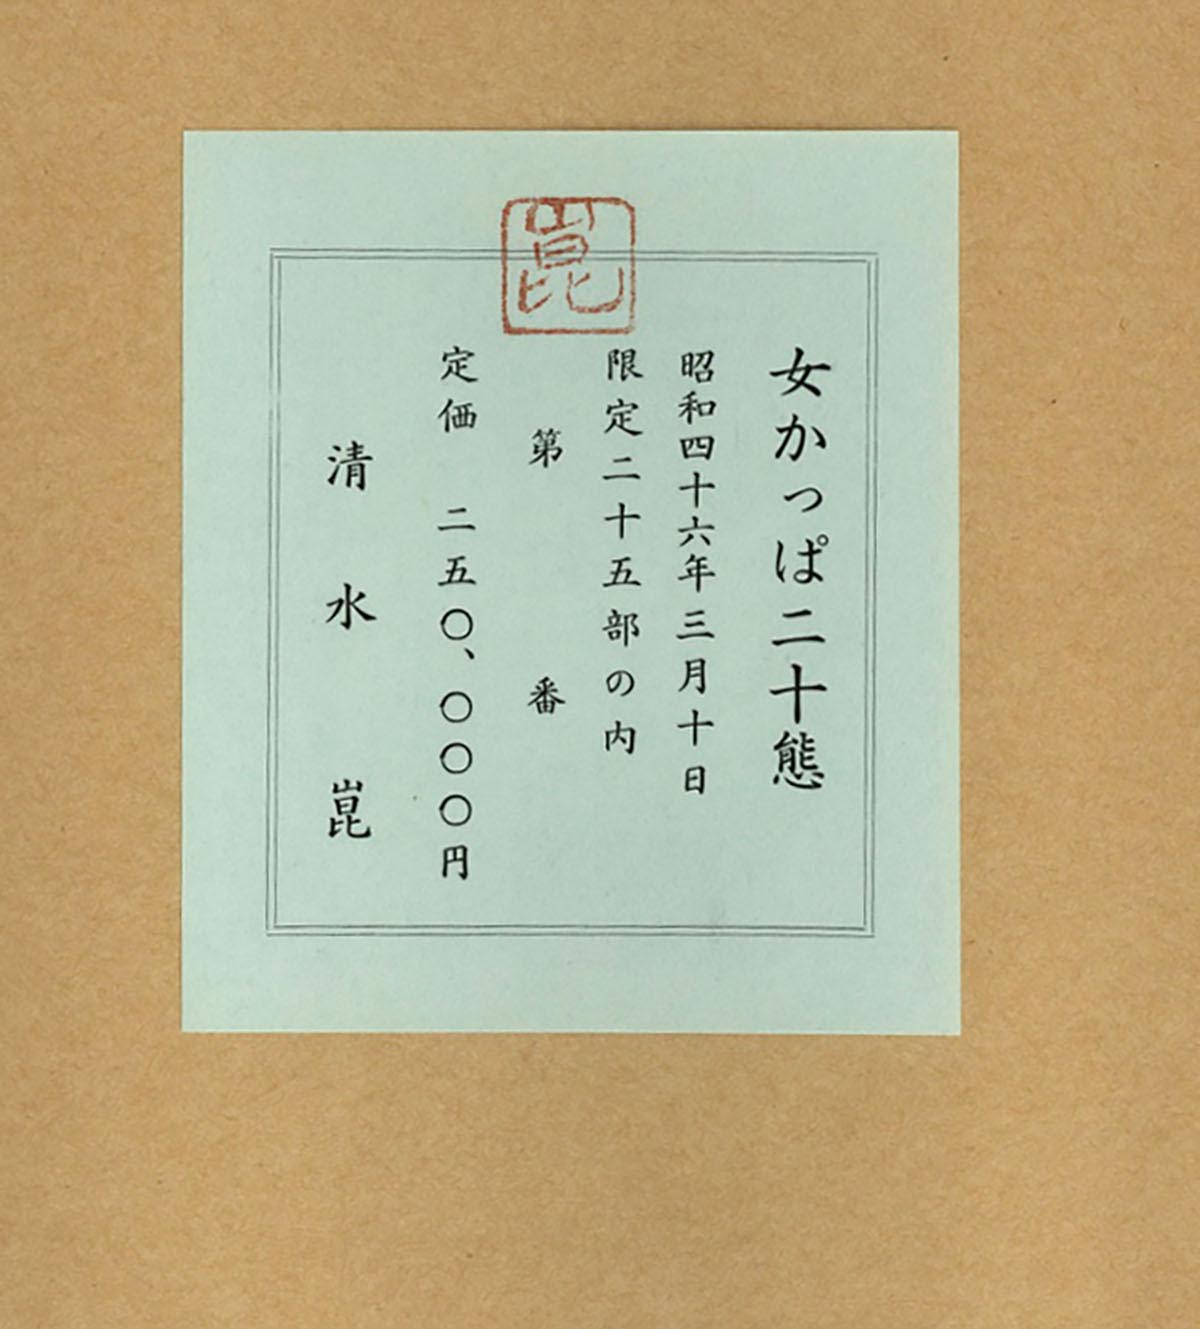 崑
女かっぱ二十態
昭和四十六年三月十日
限定二十五部の内
第 番
定価 二五〇、〇〇〇円
清水崑